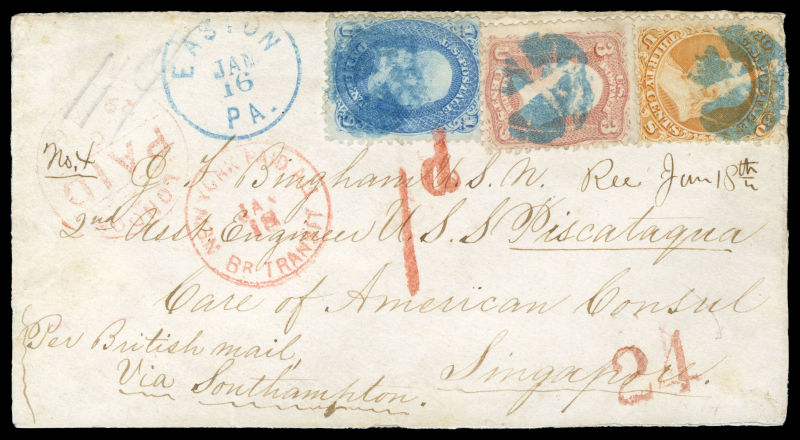 EASTON
JAN
16
PA.
U.S. POSTAGE
3 U.S. 3
THIRTY
CENTS
114
PAID
LONDON
No. 4
J F Bingham U S. N.
Rec Jun 18th
NEW YORK PAID
JA
18
BR TRANSIT
1d
2nd Asst Engineer U. S. S Piscataqua
Care of American Consul
Per British mail,
Via Southampton.
Singapore.
24